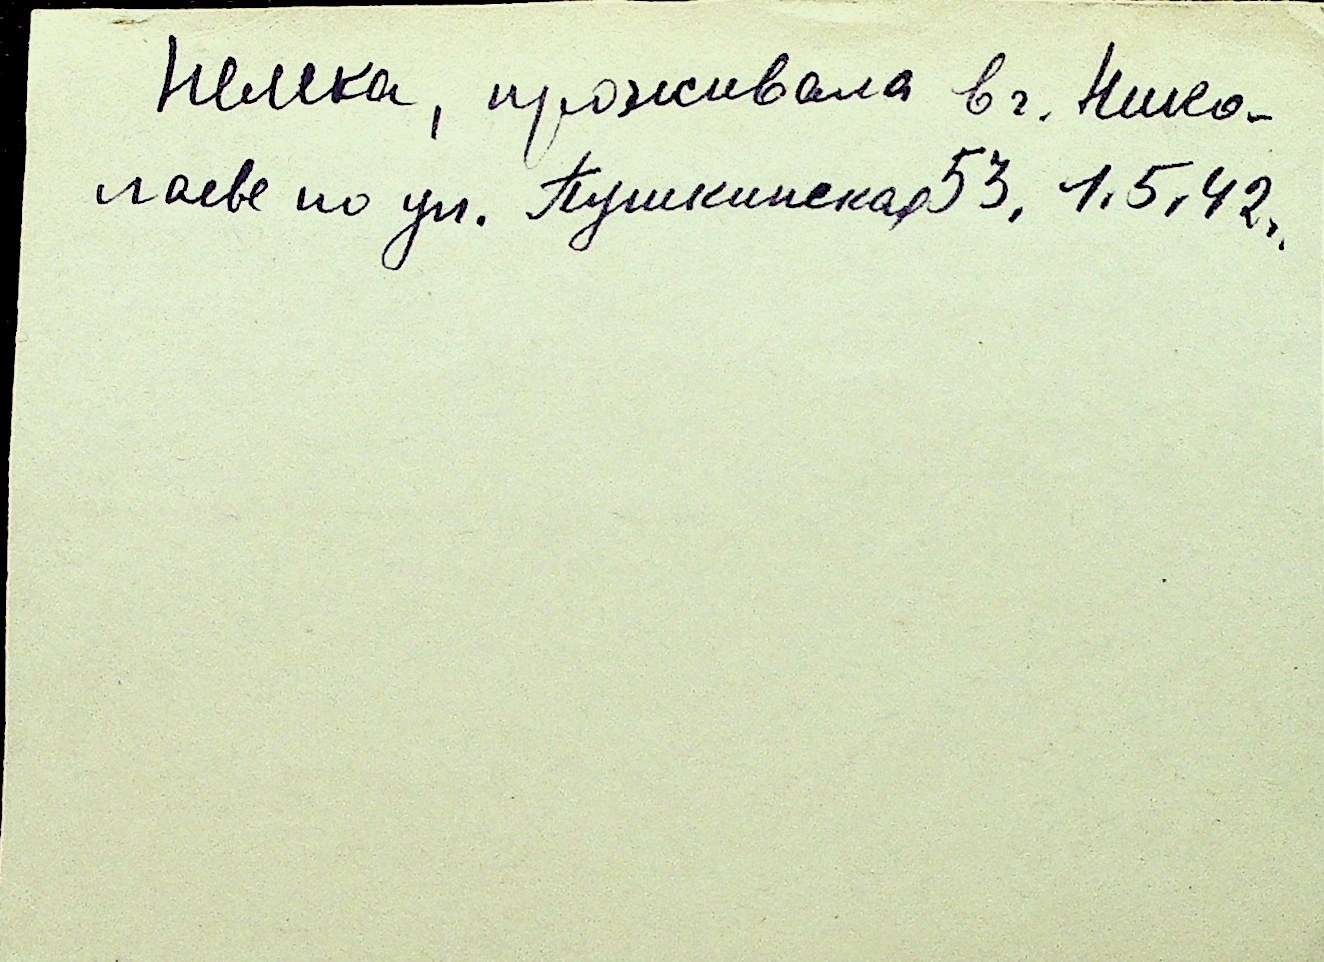 Немка, проживала в г. Нико-
лаеве по ул. Пушкинская 53, 1.5.42 г.